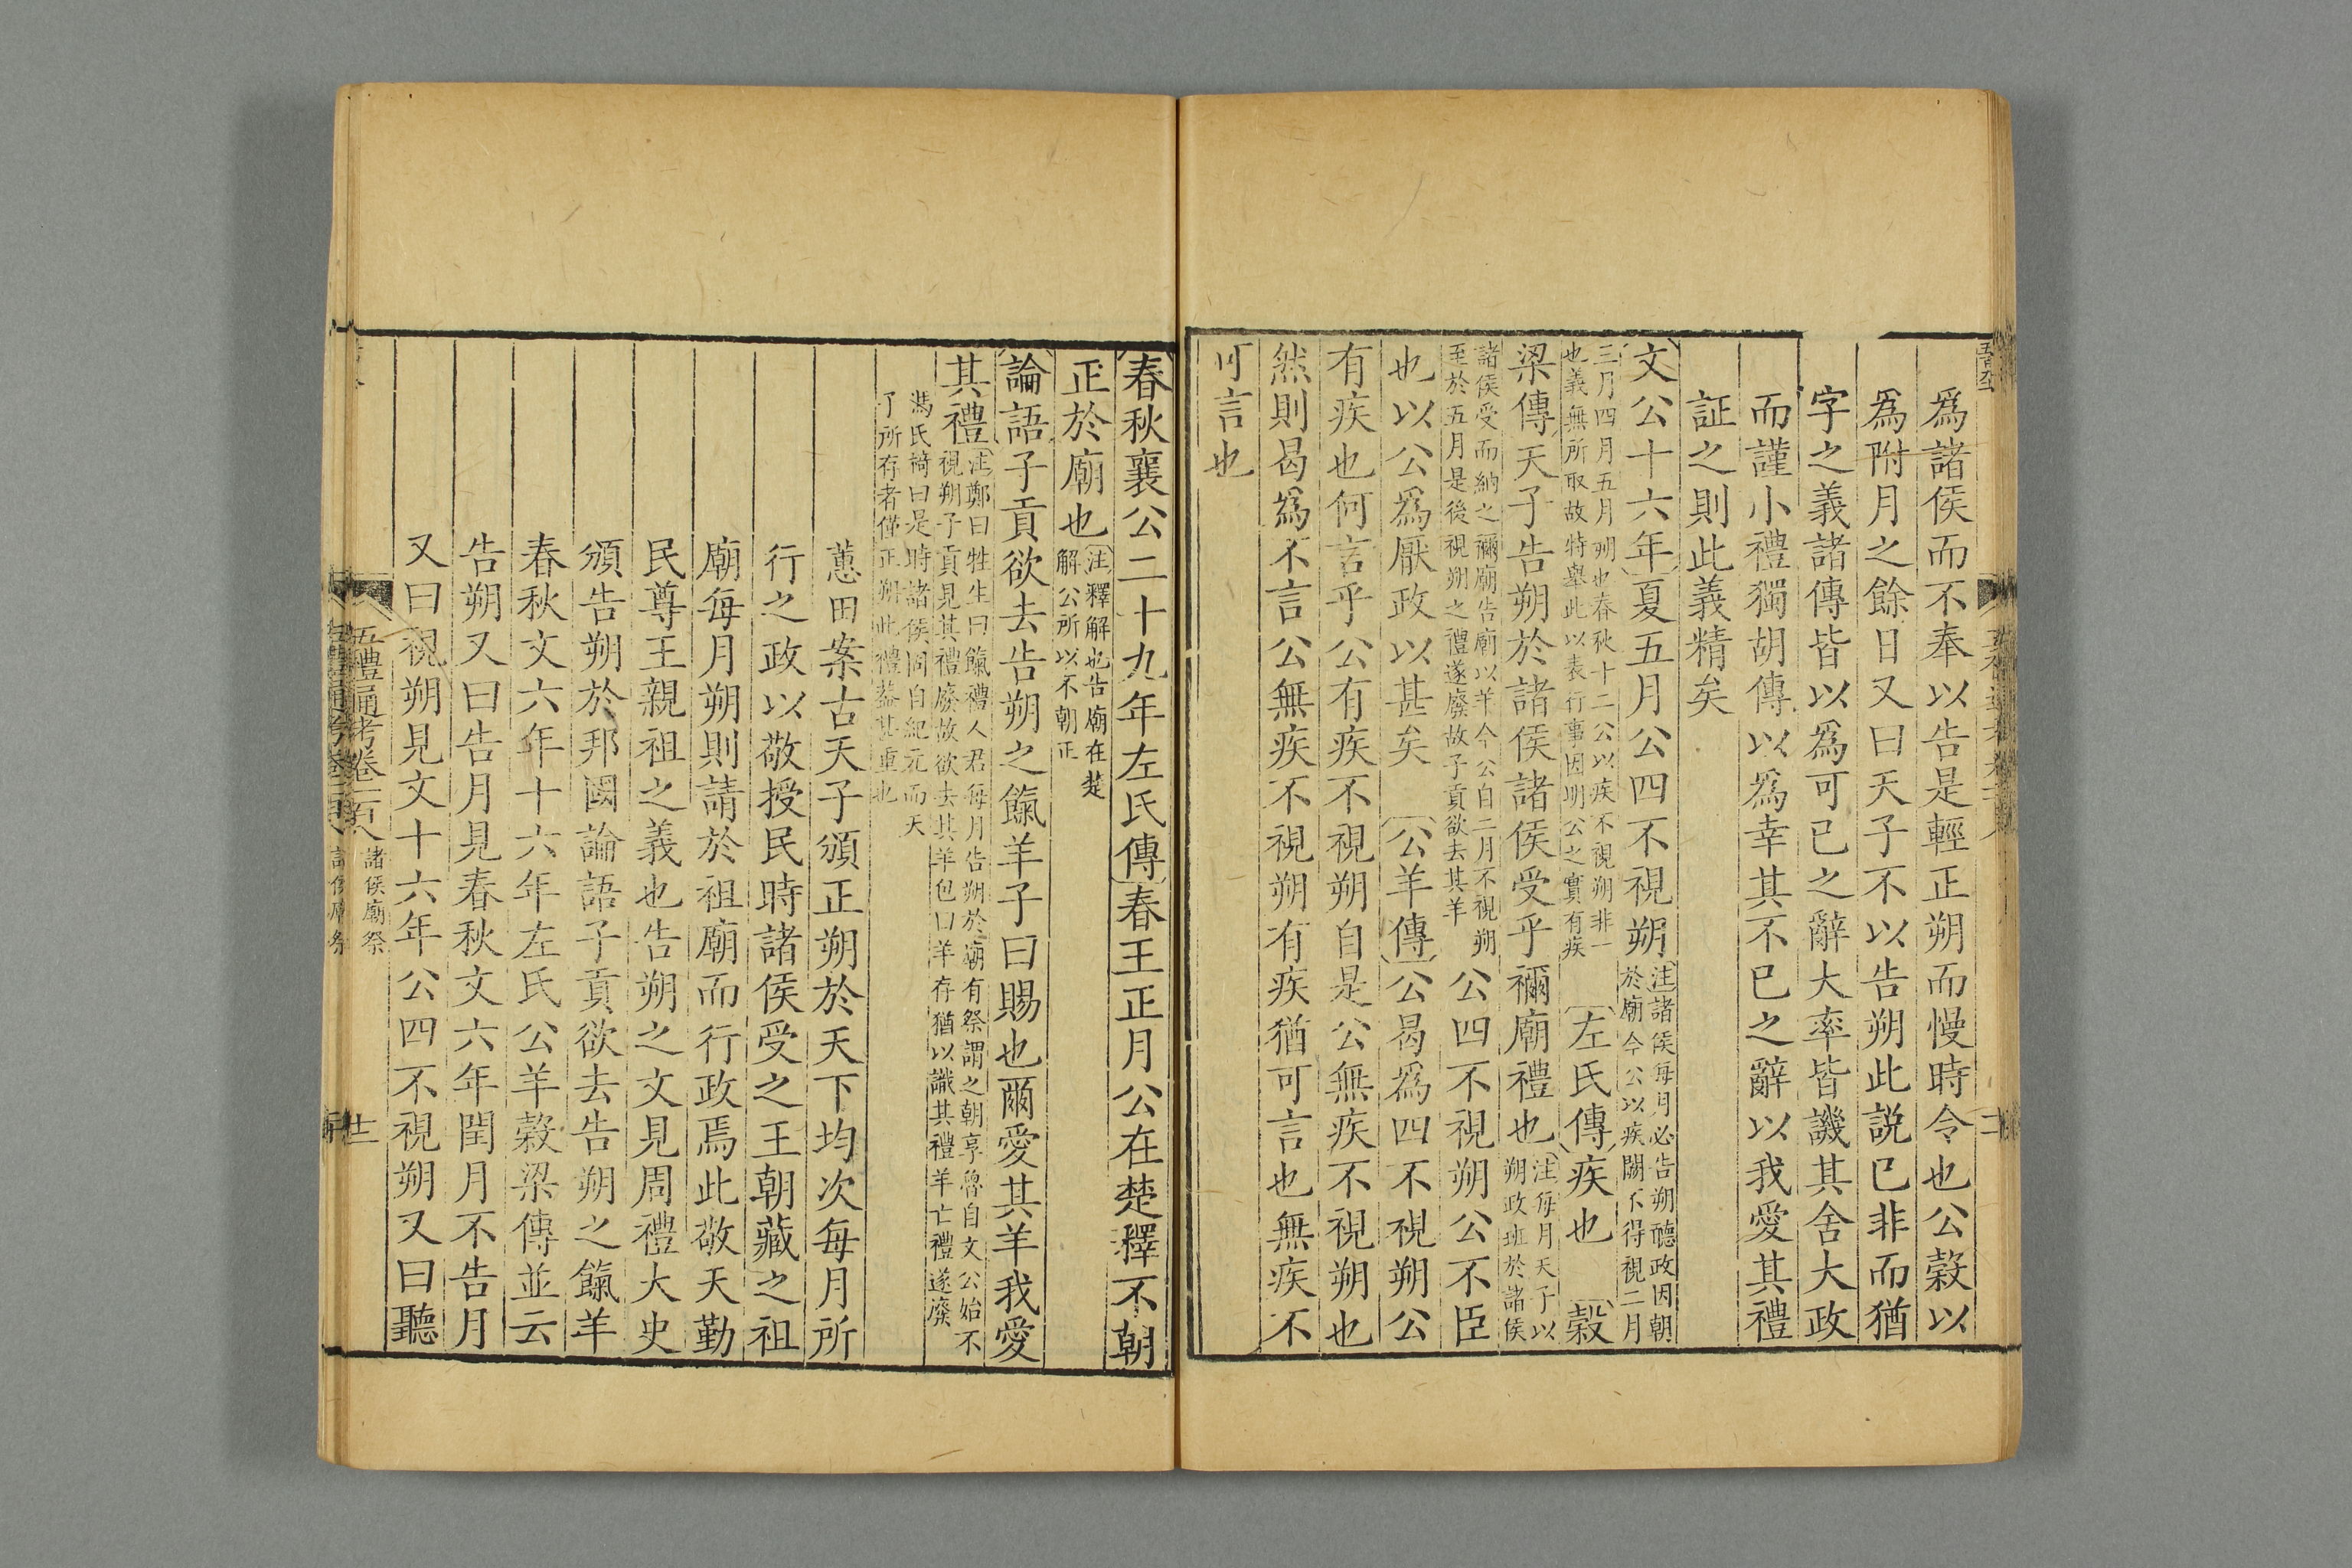 爲諸侯而不奉以告是輕正朔而慢時令也公穀以
爲附月之餘日又曰天子不以告朔此説已非而猶
字之義諸傳皆以爲可已之辭大率皆譏其舍大政
而謹小禮獨胡傳以爲幸其不已之辭以我愛其禮
証之則此義精矣
文公十六年夏五月公四不視朔
注諸侯每月必告朔聽政因朝
於廟今公以疾闕不得視二月
三月四月五月朔也春秋十二公以疾不視朔非一
也義無所取故特舉此以表行事因明公之實有疾
左氏傳疾也 穀
梁傳天子告朔於諸侯諸侯受乎禰廟禮也
注每月天子以
朔政班於諸侯
諸侯受而納之禰廟告廟以羊今公自二月不視朔
至於五月是後視朔之禮遂廢故子貢欲去其羊
公四不視朔公不臣
也以公爲厭政以甚矣 公羊傳公曷爲四不視朔公
有疾也何言乎公有疾不視朔自是公無疾不視朔也
然則曷爲不言公無疾不視朔有疾猶可言也無疾不
可言也
春秋襄公二十九年左氏傳春王正月公在楚釋不朝
正於廟也
注釋解也告廟在楚
解公所以不朝正
論語子貢欲去告朔之餼羊子曰賜也爾愛其羊我愛
其禮
注鄭曰牲生曰餼禮人君每月告朔於廟有祭謂之朝享魯自文公始不
視朔子貢見其禮廢故欲去其羊包曰羊存猶以識其禮羊亡禮遂廢
馮氏椅曰是時諸侯固自紀元而天
了所存者僅正朔此禮蓋甚重也
蕙田案古天子頒正朔於天下均次每月所
行之政以敬授民時諸侯受之王朝藏之祖
廟每月朔則請於祖廟而行政焉此敬天勤
民尊王親祖之義也告朔之文見周禮大史
頒告朔於邦國論語子貢欲去告朔之餼羊
春秋文六年十六年左氏公羊穀梁傳並云
告朔又曰告月見春秋文六年閏月不告月
又曰視朔見文十六年公四不視朔又曰聽
五禮通考卷一百八 諸侯廟祭